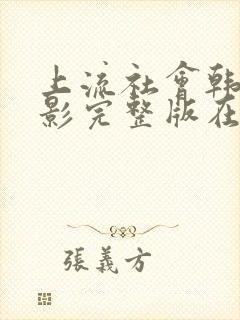 上流社會韩
影完整版在
張義方